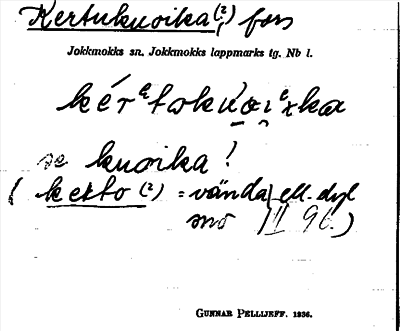 Kertukuoika (?) fors
Jokkmokks sn. Jokkmokks lappmarks tg. Nb l.
kérᵉtokúoiᵉxka
se kuoika!
(kerto (?) = vända ell. dyl
III 96.)
GUNNAR PELLIJEFF. 1936.